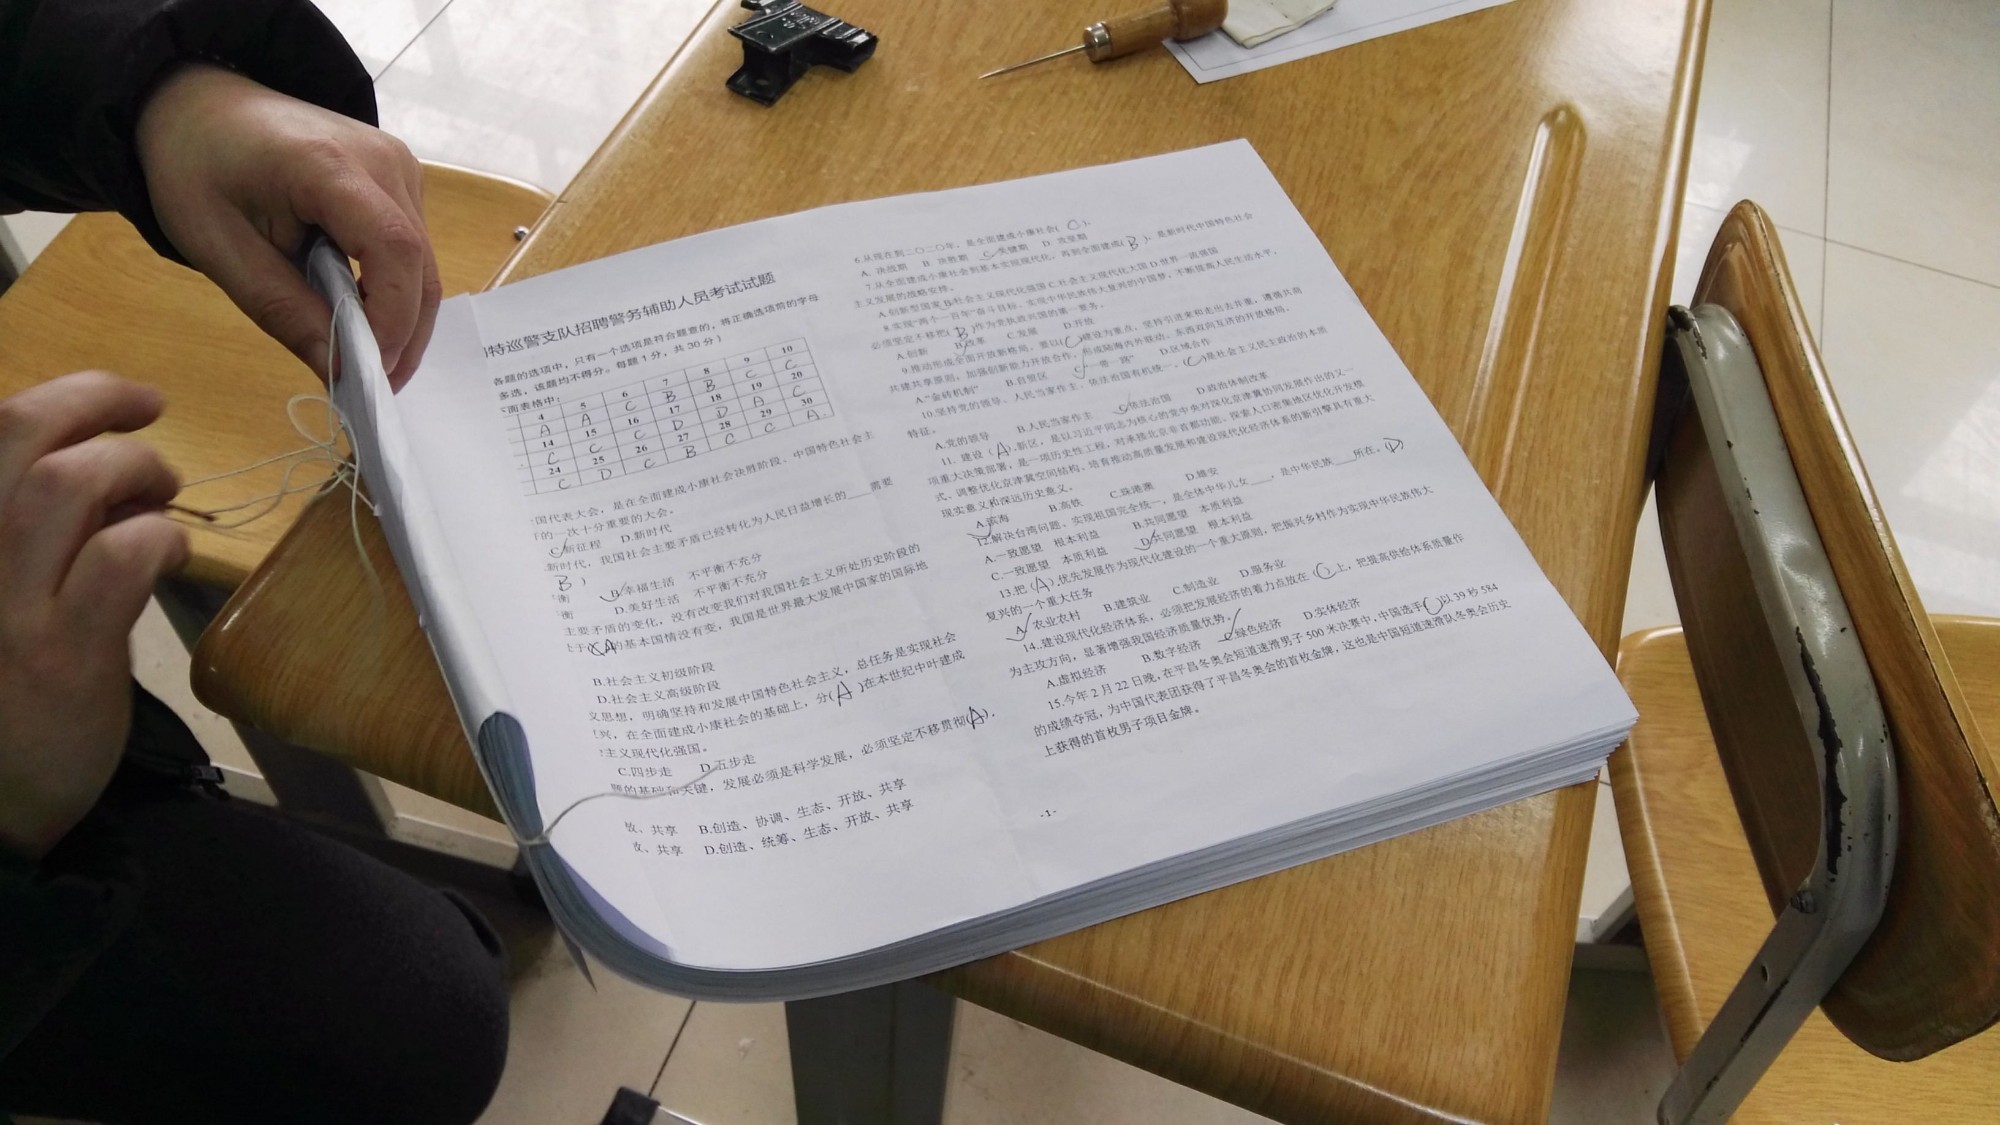 特巡警支队招聘警务辅助人员考试试题
各题的选项中，只有一个选项是符合题意的，将正确选项前的字母
多选，该题均不得分。每题1分，共30分）
面表格中：
4 5 6 7 8 9 10
A A C B B C C
14 15 16 17 18 19 20
C C C D D A C
24 25 26 27 28 29 30
C D C B C C A
国代表大会，是在全面建成小康社会决胜阶段、中国特色社会主
的一次十分重要的大会。
C.新征程 D.新时代
新时代，我国社会主要矛盾已经转化为人民日益增长的___需要
B )
衡 B.幸福生活 不平衡不充分
衡 D.美好生活 不平衡不充分
主要矛盾的变化，没有改变我们对我国社会主义所处历史阶段的
于(A的基本国情没有变，我国是世界最大发展中国家的国际地
B.社会主义初级阶段
D.社会主义高级阶段
义思想，明确坚持和发展中国特色社会主义，总任务是实现社会
兴，在全面建成小康社会的基础上，分(A)在本世纪中叶建成
主义现代化强国。
C.四步走 D.五步走
题的基础和关键，发展必须是科学发展，必须坚定不移贯彻(A)．
放、共享 B.创造、协调、生态、开放、共享
放、共享 D.创造、统筹、生态、开放、共享
6.从现在到二〇二〇年，是全面建成小康社会( C ).
A. 决战期 B. 决胜期 C. 关键期 D. 攻坚期
7.从全面建成小康社会到基本实现现代化，再到全面建成( B )，是新时代中国特色社会
主义发展的战略安排。
A.创新型国家 B.社会主义现代化强国 C.社会主义现代化大国 D.世界一流强国
8.实现“两个一百年”奋斗目标、实现中华民族伟大复兴的中国梦，不断提高人民生活水平，
必须坚定不移把( B )作为党执政兴国的第一要务，
A.创新 B.改革 C.发展 D.开放
9.推动形成全面开放新格局，要以( C )建设为重点，坚持引进来和走出去并重，遵循共商
共建共享原则，加强创新能力开放合作，形成陆海内外联动、东西双向互济的开放格局。
A.“金砖机制” B.自贸区 C.“一带一路” D.区域合作
10.坚持党的领导、人民当家作主、依法治国有机统一，( C )是社会主义民主政治的本质
特征。
A.党的领导 B.人民当家作主 C.依法治国 D.政治体制改革
11. 建设（A）新区，是以习近平同志为核心的党中央对深化京津冀协同发展作出的又一
项重大决策部署，是一项历史性工程，对承接北京非首都功能、探索人口密集地区优化开发模
式、调整优化京津冀空间结构、培育推动高质量发展和建设现代化经济体系的新引擎具有重大
现实意义和深远历史意义。
A.滨海 B.高铁 C.珠港澳 D.雄安
12.解决台湾问题、实现祖国完全统一，是全体中华儿女___，是中华民族___所在。(D)
A.一致愿望 根本利益 B.共同愿望 本质利益
C.一致愿望 本质利益 D.共同愿望 根本利益
13.把（A）优先发展作为现代化建设的一个重大原则，把振兴乡村作为实现中华民族伟大
复兴的一个重大任务
A.农业农村 B.建筑业 C.制造业 D.服务业
14. 建设现代化经济体系，必须把发展经济的着力点放在（C）上，把提高供给体系质量作
为主攻方向，显著增强我国经济质量优势。
A.虚拟经济 B.数字经济 C.绿色经济 D.实体经济
15.今年2月22日晚，在平昌冬奥会短道速滑男子500米决赛中，中国选手( C )以39秒584
的成绩夺冠，为中国代表团获得了平昌冬奥会的首枚金牌，这也是中国短道速滑队冬奥会历史
上获得的首枚男子项目金牌。
-1-